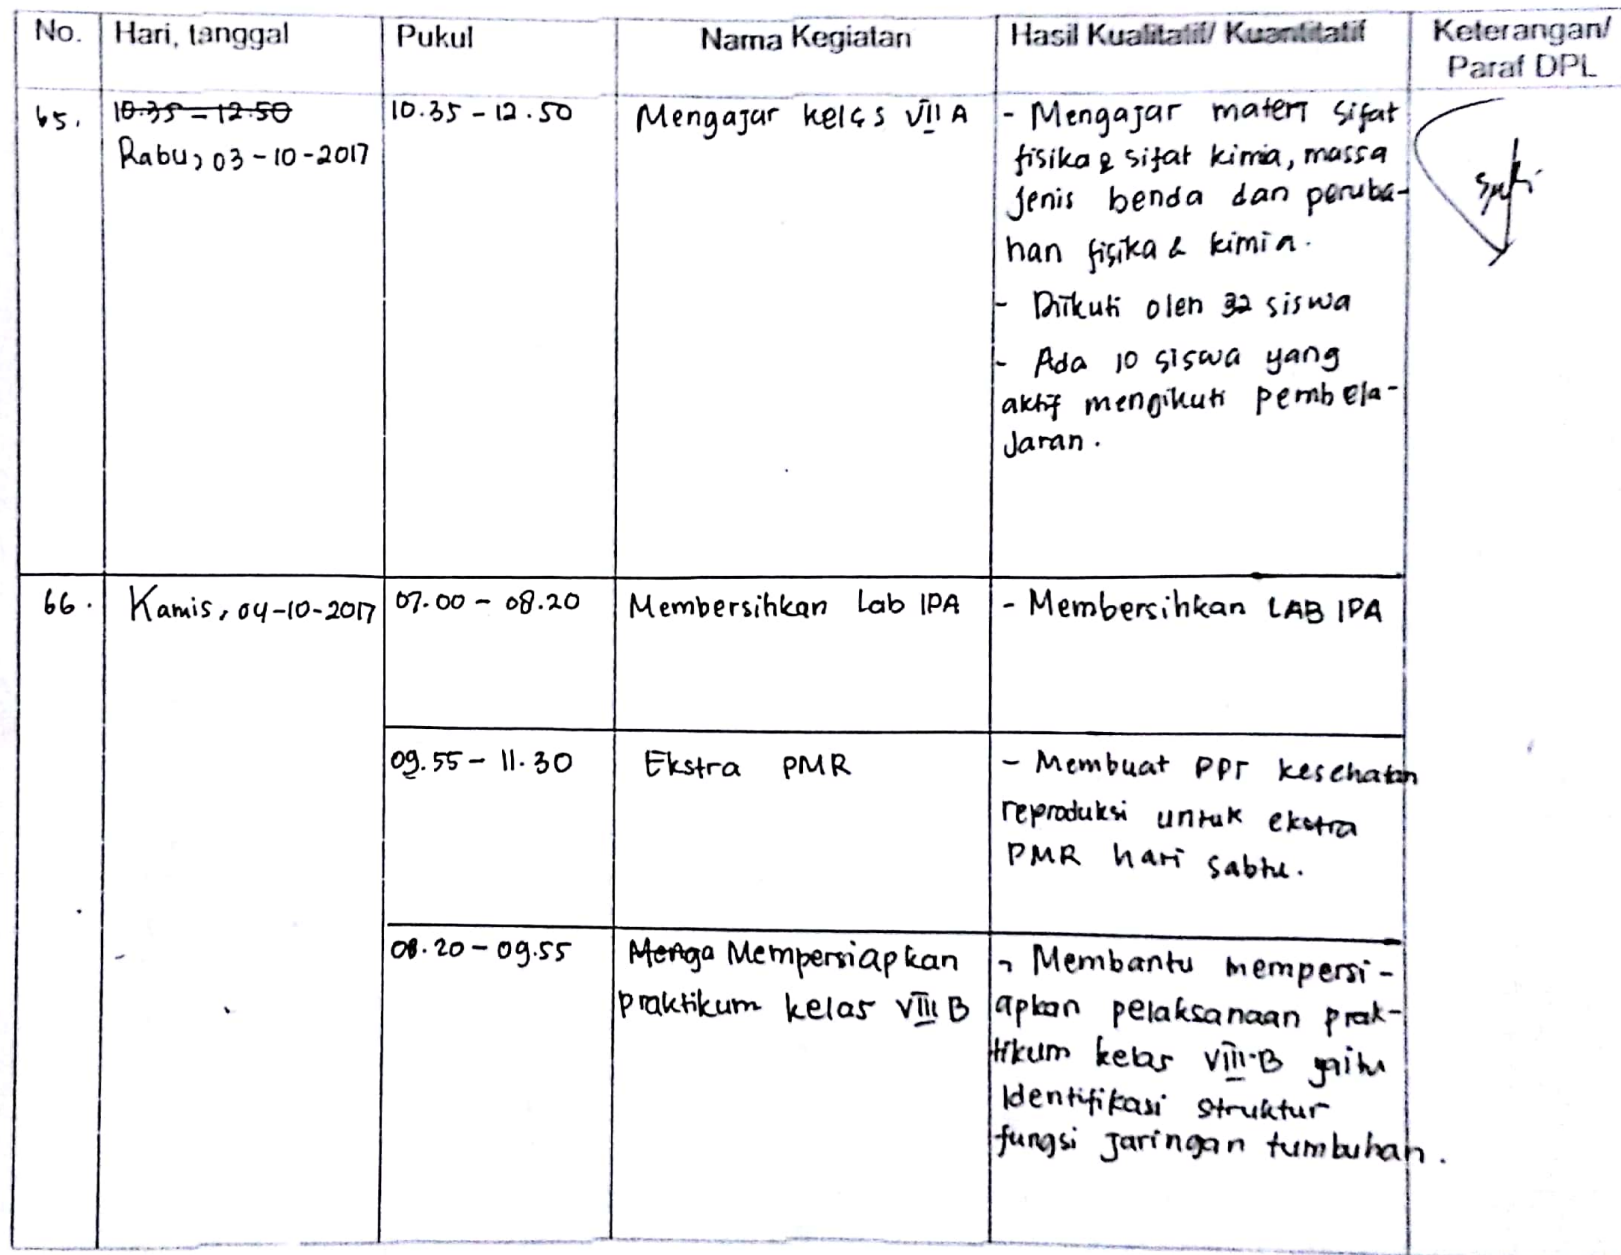 No. Hari, tanggal Pukul Nama Kegiatan Hasil Kualitatif/ Kuantitatif Keterangan/
Paraf DPL
65. 10.35 - 12.50 10.35 - 12.50 Mengajar kelas VII A - Mengajar materi sifat
Rabu, 03-10-2017 fisika & sifat kimia, massa
jenis benda dan peruba-
han fisika & kimia.
- Diikuti oleh 32 siswa
- Ada 10 siswa yang
aktif mengikuti pembela-
jaran.
66. Kamis, 04-10-2017 07.00 - 08.20 Membersihkan Lab IPA - Membersihkan LAB IPA
09.55 - 11.30 Ekstra PMR - Membuat PPT kesehatan
reproduksi untuk ekstra
PMR hari sabtu.
08.20 - 09.55 Menga Mempersiapkan - Membantu mempersi-
praktikum kelas VIII B apkan pelaksanaan prak-
tikum kelas VIII-B yaitu
Identifikasi struktur
fungsi jaringan tumbuhan.